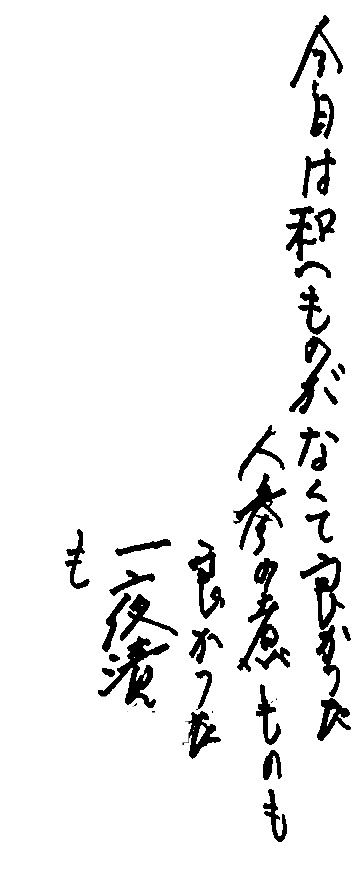 今日は和へものがなくて良かった
人参の煮ものも
良かった
一夜漬
も